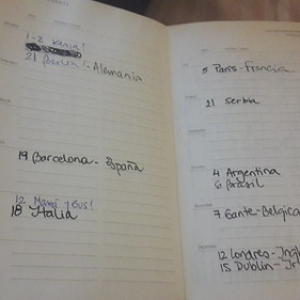 1-2
21 Berlin - Alemania
19 Barcelona - España
12 Mamá y Gus!
18 Italia
5 Paris - Francia
21 Serbia
4 Argentina
6 Brasil
7 Gante - Belgica
12 Londres - Ingl
15 Dublin - Ir